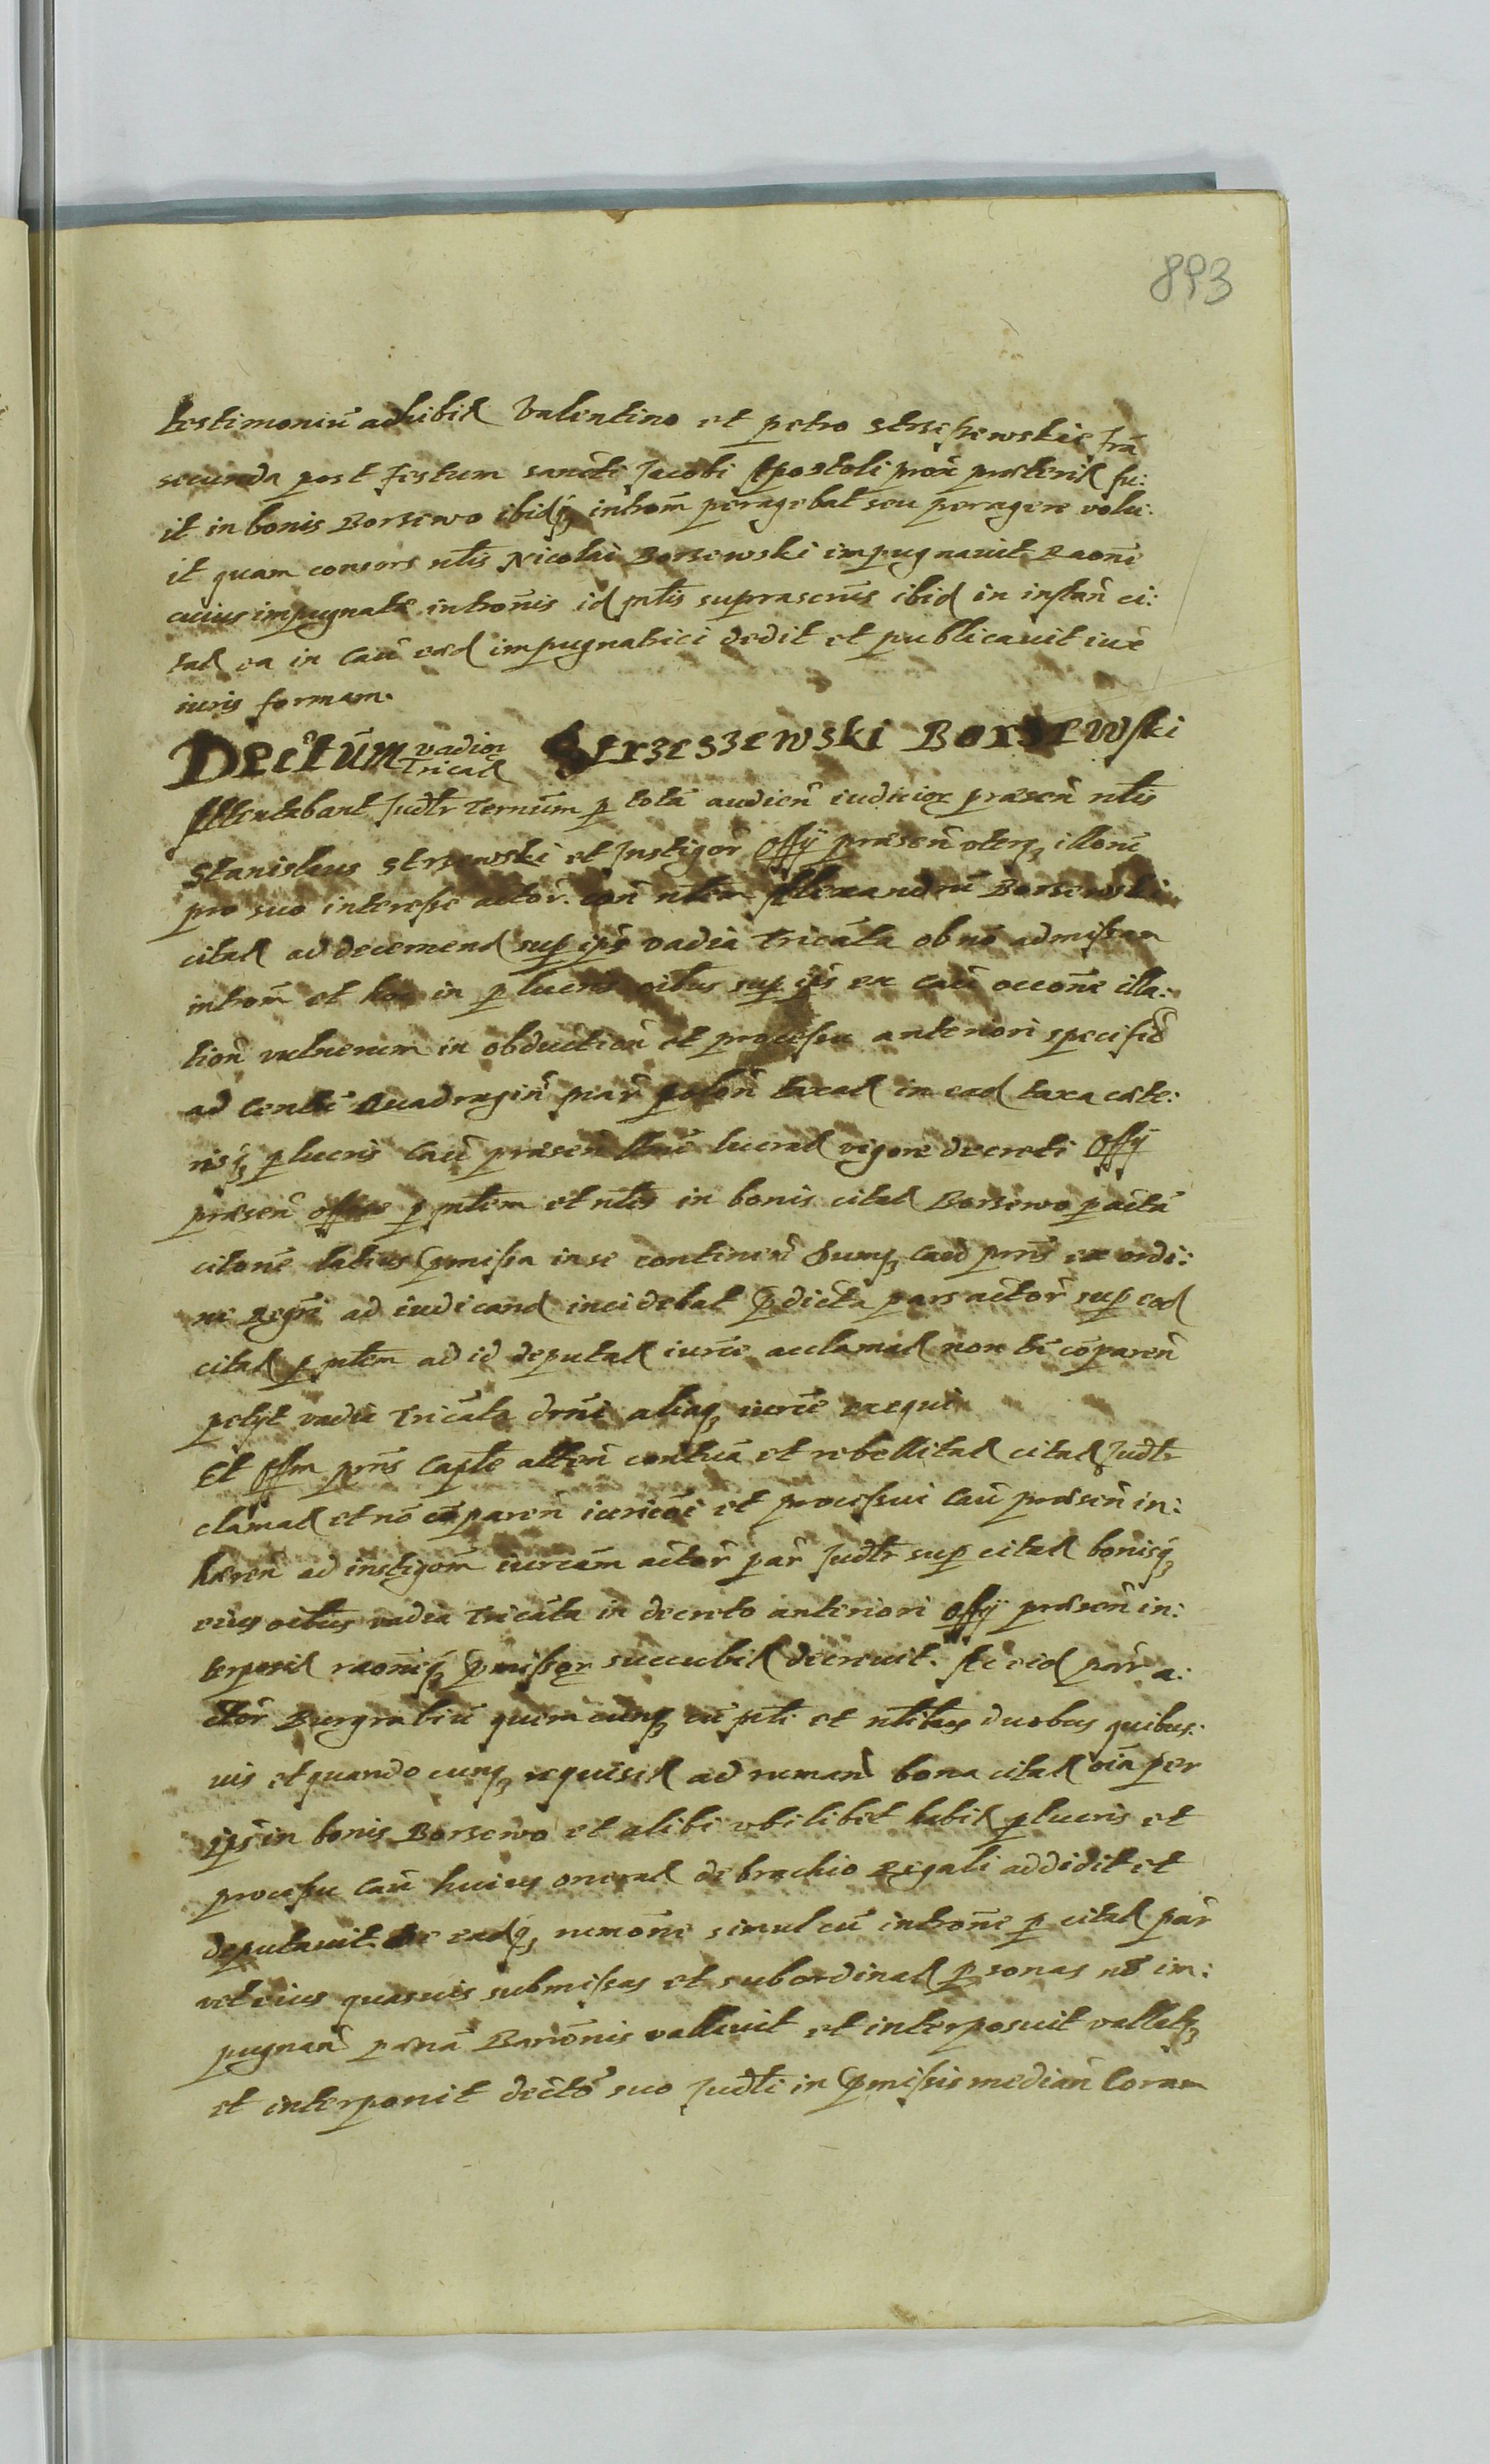 893
testimoniū adhibit Valentino et petro Strseszewskie fra
secunda post festum sancti Jacobi Apostoli prox praeterit fu:
it in bonis Borzewo ibidq intrōm peragebat seu peragere volu:
it quam consors nłis Nicolai Borzewski impugnavit Raone
cuius impugnatæ intronis id młis suprascrus ibid in instan ci:
tat ea in Cau ead impugnatrici dedit et publicavit iux
iuris formam.
Dectūm vadior Tricat Strzeszewski Borzewski
Attentabant Judłr Terminūm p totā audien iudicior præsen nłis
Stanislaus Strzewski et Instigor Offÿ præsen uterq illoru
pro suo interesse actor. con nłem Alexandrū Borzewski
citat ad decernend sup ips vadia Tricata ob nō admissam
introm et hoc in plucris oibus sup ips ex Cau occone illa:
tion vulnerum in obduction et processu anteriori specific
ad Centū Quadragin mar polon taxat in ead taxa cæte:
risq plucris Cau præsen lucrat vigore decreti Offÿ
præsen p młem et nłes in bonis citat Borzewo p actū
citone latius pmissa in se continen Dumq Caud prns ex ordi:
ne Regri ad iudicand incidebat pdicta pars actor sup eod
citat p młem ad id deputat iurce acclamat non tn cōparen
petÿt vadia Tricata drni aliaq iurce exequi
Et Offm prns Capłe atten contuā et rebellitat citat Judłr
clamat et nō cōparen iuricōi et processui Cau præsen in:
hæren ad instigom iurcam actor par Judłr sup citat bonisq
eius oibus vadia Tricata in decreto anteriori Offÿ præsen in:
terposit raoneq pmissor succubit decrevit. Ac eid par a:
ctor Burgrabiū quemcunq cū młi et nłibus duobus quibus:
vis et quandocunq requisit ad ruman bona citat oia per
ips in bonis Borzewo et alibi ubilibet habit plucris et
processu Cau huius onerat de brachio Regali addidit et
deputavit. De eadq rumone simul cū introne p citat par
vel eius quasuis submissas et subordinat psonas nō im:
pugnan pænā Banionis vallavit et interposuit vallatq
et interponit decto suo Judłi in pmissis median Coram